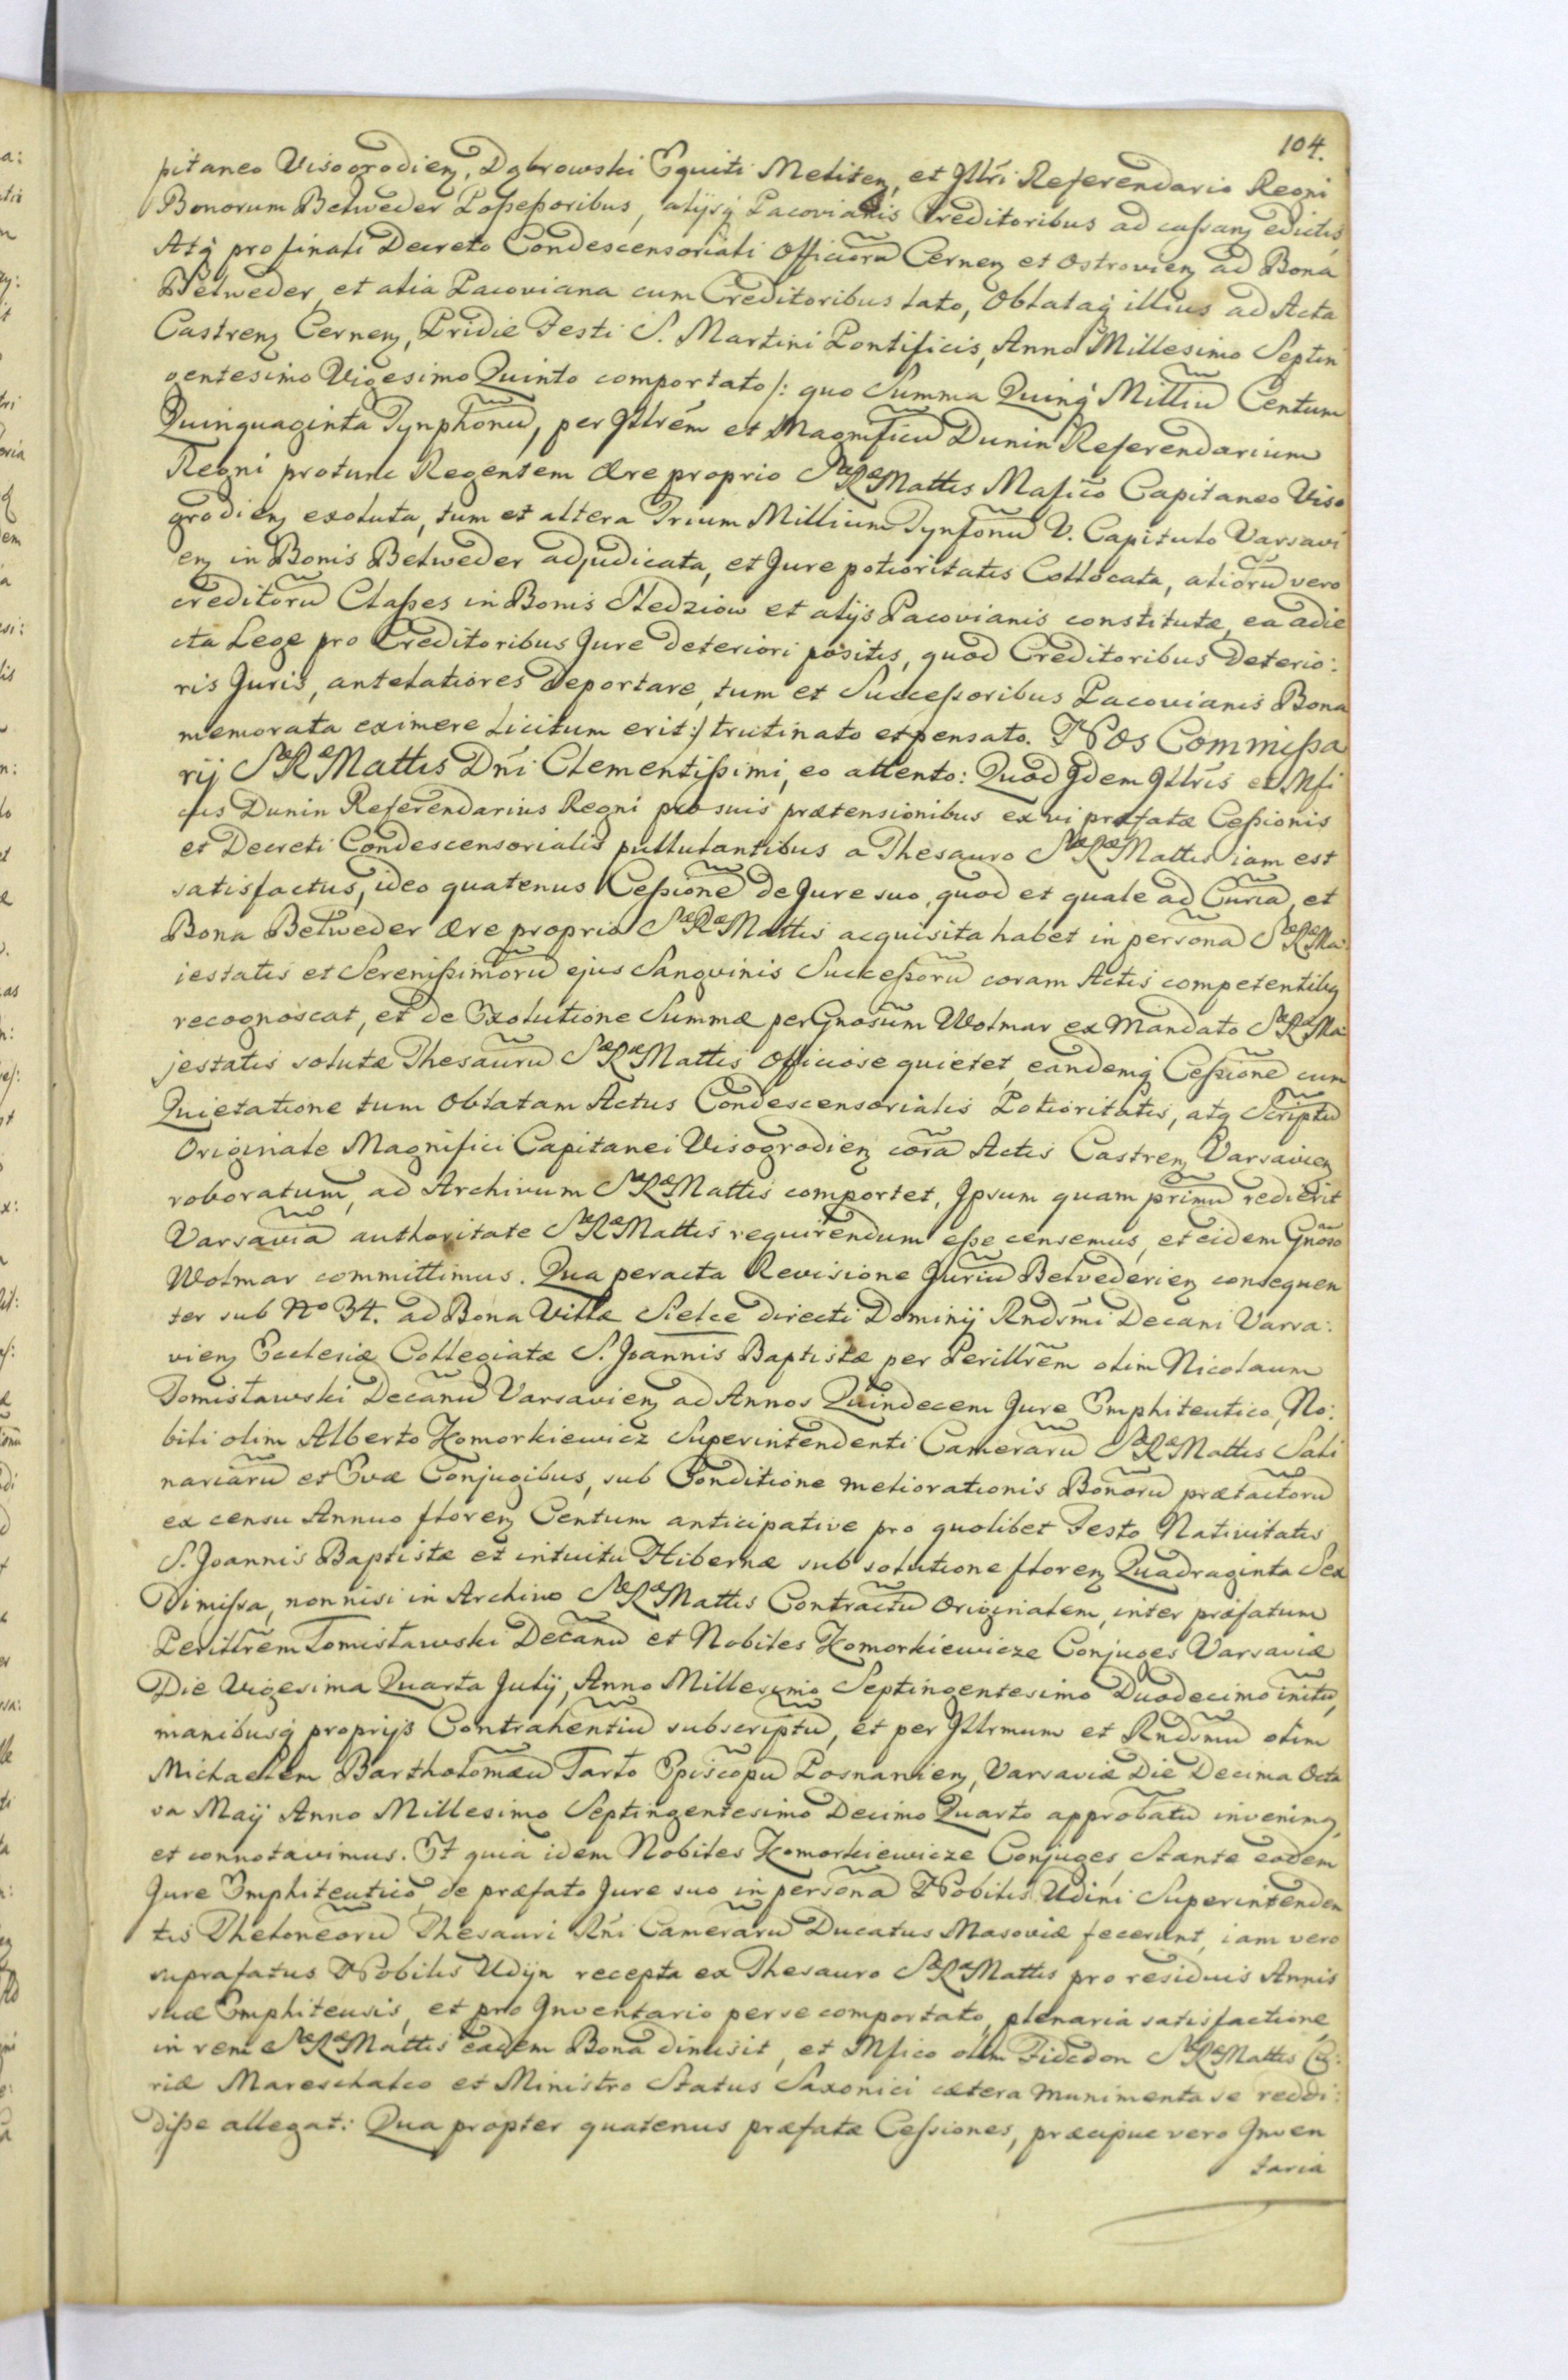 104.
pitaneo Visogrodien, Dąbrowski Equiti Meliten, et Jllri Referendario Regni
Bonorum Belweder Poßeßoribus, alijsq Pacovianis Creditoribus ad caßan edictis,
Atq pro finali Decreto Condescensoriali Officioru Cernen et Ostrovien ad Bona
Belweder, et alia Pacoviana cum Creditoribus lato, Oblataq illius ad Acta
Castren Cernen, Pridie Festi S. Martini Pontificis, Anno Millesimo Septin
gentesimo Vigesimo Quinto comportato /: quo Summa Quinq Milliu Centum
Quinquaginta Tynphonu, per Jllrem et Magnificu Dunin Referendarium
Regni protunc Regentem Ære proprio SæRæMattis Mafico Capitaneo Viso
grodien exoluta, tum et altera Trium Millium Tynfonu V. Capitulo Varsavi
en in Bonis Belweder adjudicata, et Jure potioritatis Collocata, alioru vero
creditoru Claßes in Bonis Stedziow et alijs Pacovianis constitutæ, ea adie
cta Lege pro Creditoribus Jure deteriori positis, quod Creditoribus Deterio:
ris Juris, antelatiores deportare, tum et Succeßoribus Pacovianis Bona
memorata eximere Licitum erit :/ trutinato et pensato. Nos Commißa
rij SæRæMattis Dni Clementißimi, eo attento: Quod Jdem Jllris et Mfi
cus Dunin Referendarius Regni pro suis prætensionibus ex vi præfatæ Ceßionis
et Decreti Condescensorialis pullulantibus a Thesauro SæRæMattis iam est
satisfactus, ideo quatenus Ceßione de Jure suo, quod et quale ad Curia, et
Bona Belweder Ære proprio SæRæMattis acquisita habet in persona SæRæMa
iestatis et Serenißimoru ejus Sangvinis Succeßoru coram Actis competentibq
recognoscat, et de Exolutione Summæ per Gnosum Wolmar ex Mandato SæRæMa
jestatis solutæ Thesauru SæRæMattis Officiose quietet, eandemq Ceßione cum
Quietatione tum Oblatam Actus Condescensorialis Potioritatis, atq Scriptu
Originale Magnifici Capitanei Visogrodien cora Actis Castren Varsavien
roboratum, ad Archivum SæRæMattis comportet, Jpsum quam primu redierit
Varsavia authoritate SæRæMattis requirendum eße censemus, et eidem Gnoso
Wolmar committimus. Qua peracta Revisione Juriu Belvederien consequen
ter sub No 34. ad Bona Villæ Sielce directi Dominij Rndsmi Decani Varsa:
vien Ecclesiæ Collegiatæ S. Joannis Baptistæ per Perillrem olim Nicolaum
Tomisławski Decanu Varsavien ad Annos Quindecem Jure Emphiteutico, No:
bili olim Alberto Komorkiewicz Superintendenti Cameraru SæRæMattis Sali
nariaru et Evæ Conjugibus, sub Conditione meliorationis Bonoru prætactoru
ex censu Annuo floren Centum anticipative pro quolibet Festo Nativitatis
S. Joannis Baptistæ et intuitu Hibernæ sub solutione floren Quadraginta Sex
Dimißa, non nisi in Archivo SæRæMattis Contractu Originalem, inter præfatum
Perillrem Tomisławski Decanu et Nobiles Komorkiewicze Conjuges Varsaviæ
Die Vigesima Quarta Julij, Anno Millesimo Septingentesimo Duodecimo initu,
manibusq proprijs Contrahentiu subscriptu, et per Jllrmum et Rndsmu olim
Michaelem Bartholomæu Tarło Episcopu Posnanien, Varsaviæ Die Decima Octa
va Maij Anno Millesimo Septingentesimo Decimo Quarto approbatu invenimq,
et connotavimus. Et quia idem Nobiles Komorkiewicze Conjuges, Stante eodem
Jure Emphiteutico, de præfato Jure suo in persona Nobilis Udini Superintenden
tis Theloneoru Thesauri Rni Cameraru Ducatus Masoviæ fecerunt, iam vero
suprafatus Nobilis Udijn recepta ex Thesauro SæRæMattis pro residuis Annis
suæ Emphiteusis, et pro Jnventario per se comportato, plenaria satisfactione,
in rem SæRæMattis eadem Bona dimisit, et Mfico olim Fidedon SæRæMattis Cu:
riæ Mareschalco et Ministro Status Saxonici cætera munimenta se reddi:
diße allegat: Qua propter quatenus præfatæ Ceßiones, præcipue vero Jnven
taria